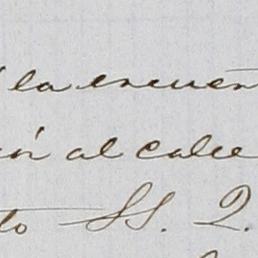 la encuen
ón al calce
to SS. 2.